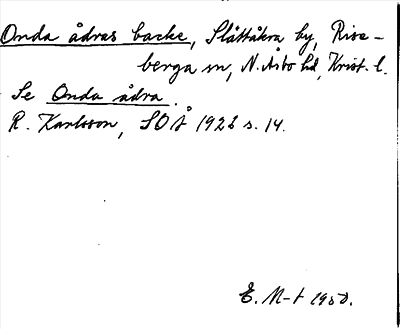 Onda ådras backe, Slättåkra by, Rise-
berga sn, N. Åsbo hd, Krist. l.
Se Onda ådra.
R. Karlsson, SOÅ 1926 s. 14.
E. M-t 1950.